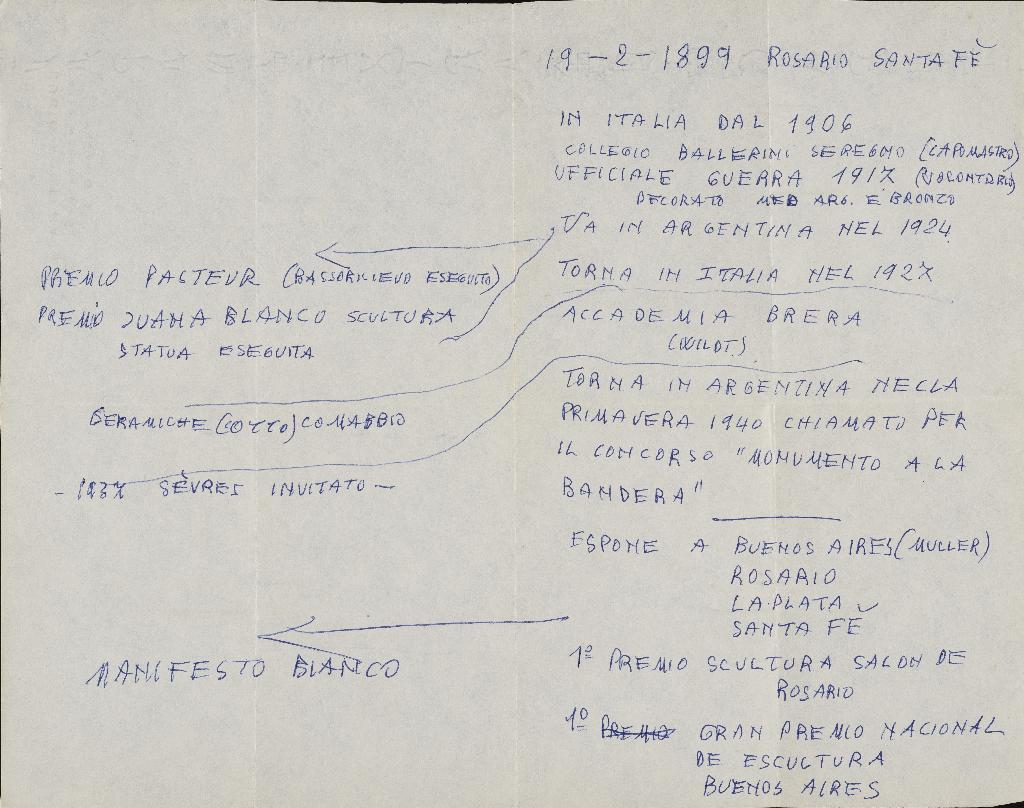 19-2-1899 ROSARIO SANTA FÈ
IN ITALIA DAL 1906
COLLEGIO BALLERINI SEREGNO (CAPOMASTRO)
UFFICIALE GUERRA 1917 (VOLONTARIO)
DECORATO MED ARG. E BRONZO
VA IN ARGENTINA NEL 1924
TORNA IN ITALIA NEL 1927
ACCADEMIA BRERA
(WILDT.)
TORNA IN ARGENTINA NELLA
PRIMAVERA 1940 CHIAMATO PER
IL CONCORSO "MONUMENTO A LA
BANDERA"
ESPONE A BUENOS AIRES (MULLER)
ROSARIO
LA PLATA
SANTA FÈ
1º PREMIO SCULTURA SALON DE
ROSARIO
1º PREMIO GRAN PREMIO NACIONAL
DE ESCULTURA
BUENOS AIRES
PREMIO PASTEUR (BASSORILIEVO ESEGUITO)
PREMIO JUANA BLANCO SCULTURA
STATUA ESEGUITA
CERAMICHE (COTTO) COMABBIO
- 1937 SÈVRES INVITATO -
MANIFESTO BLANCO